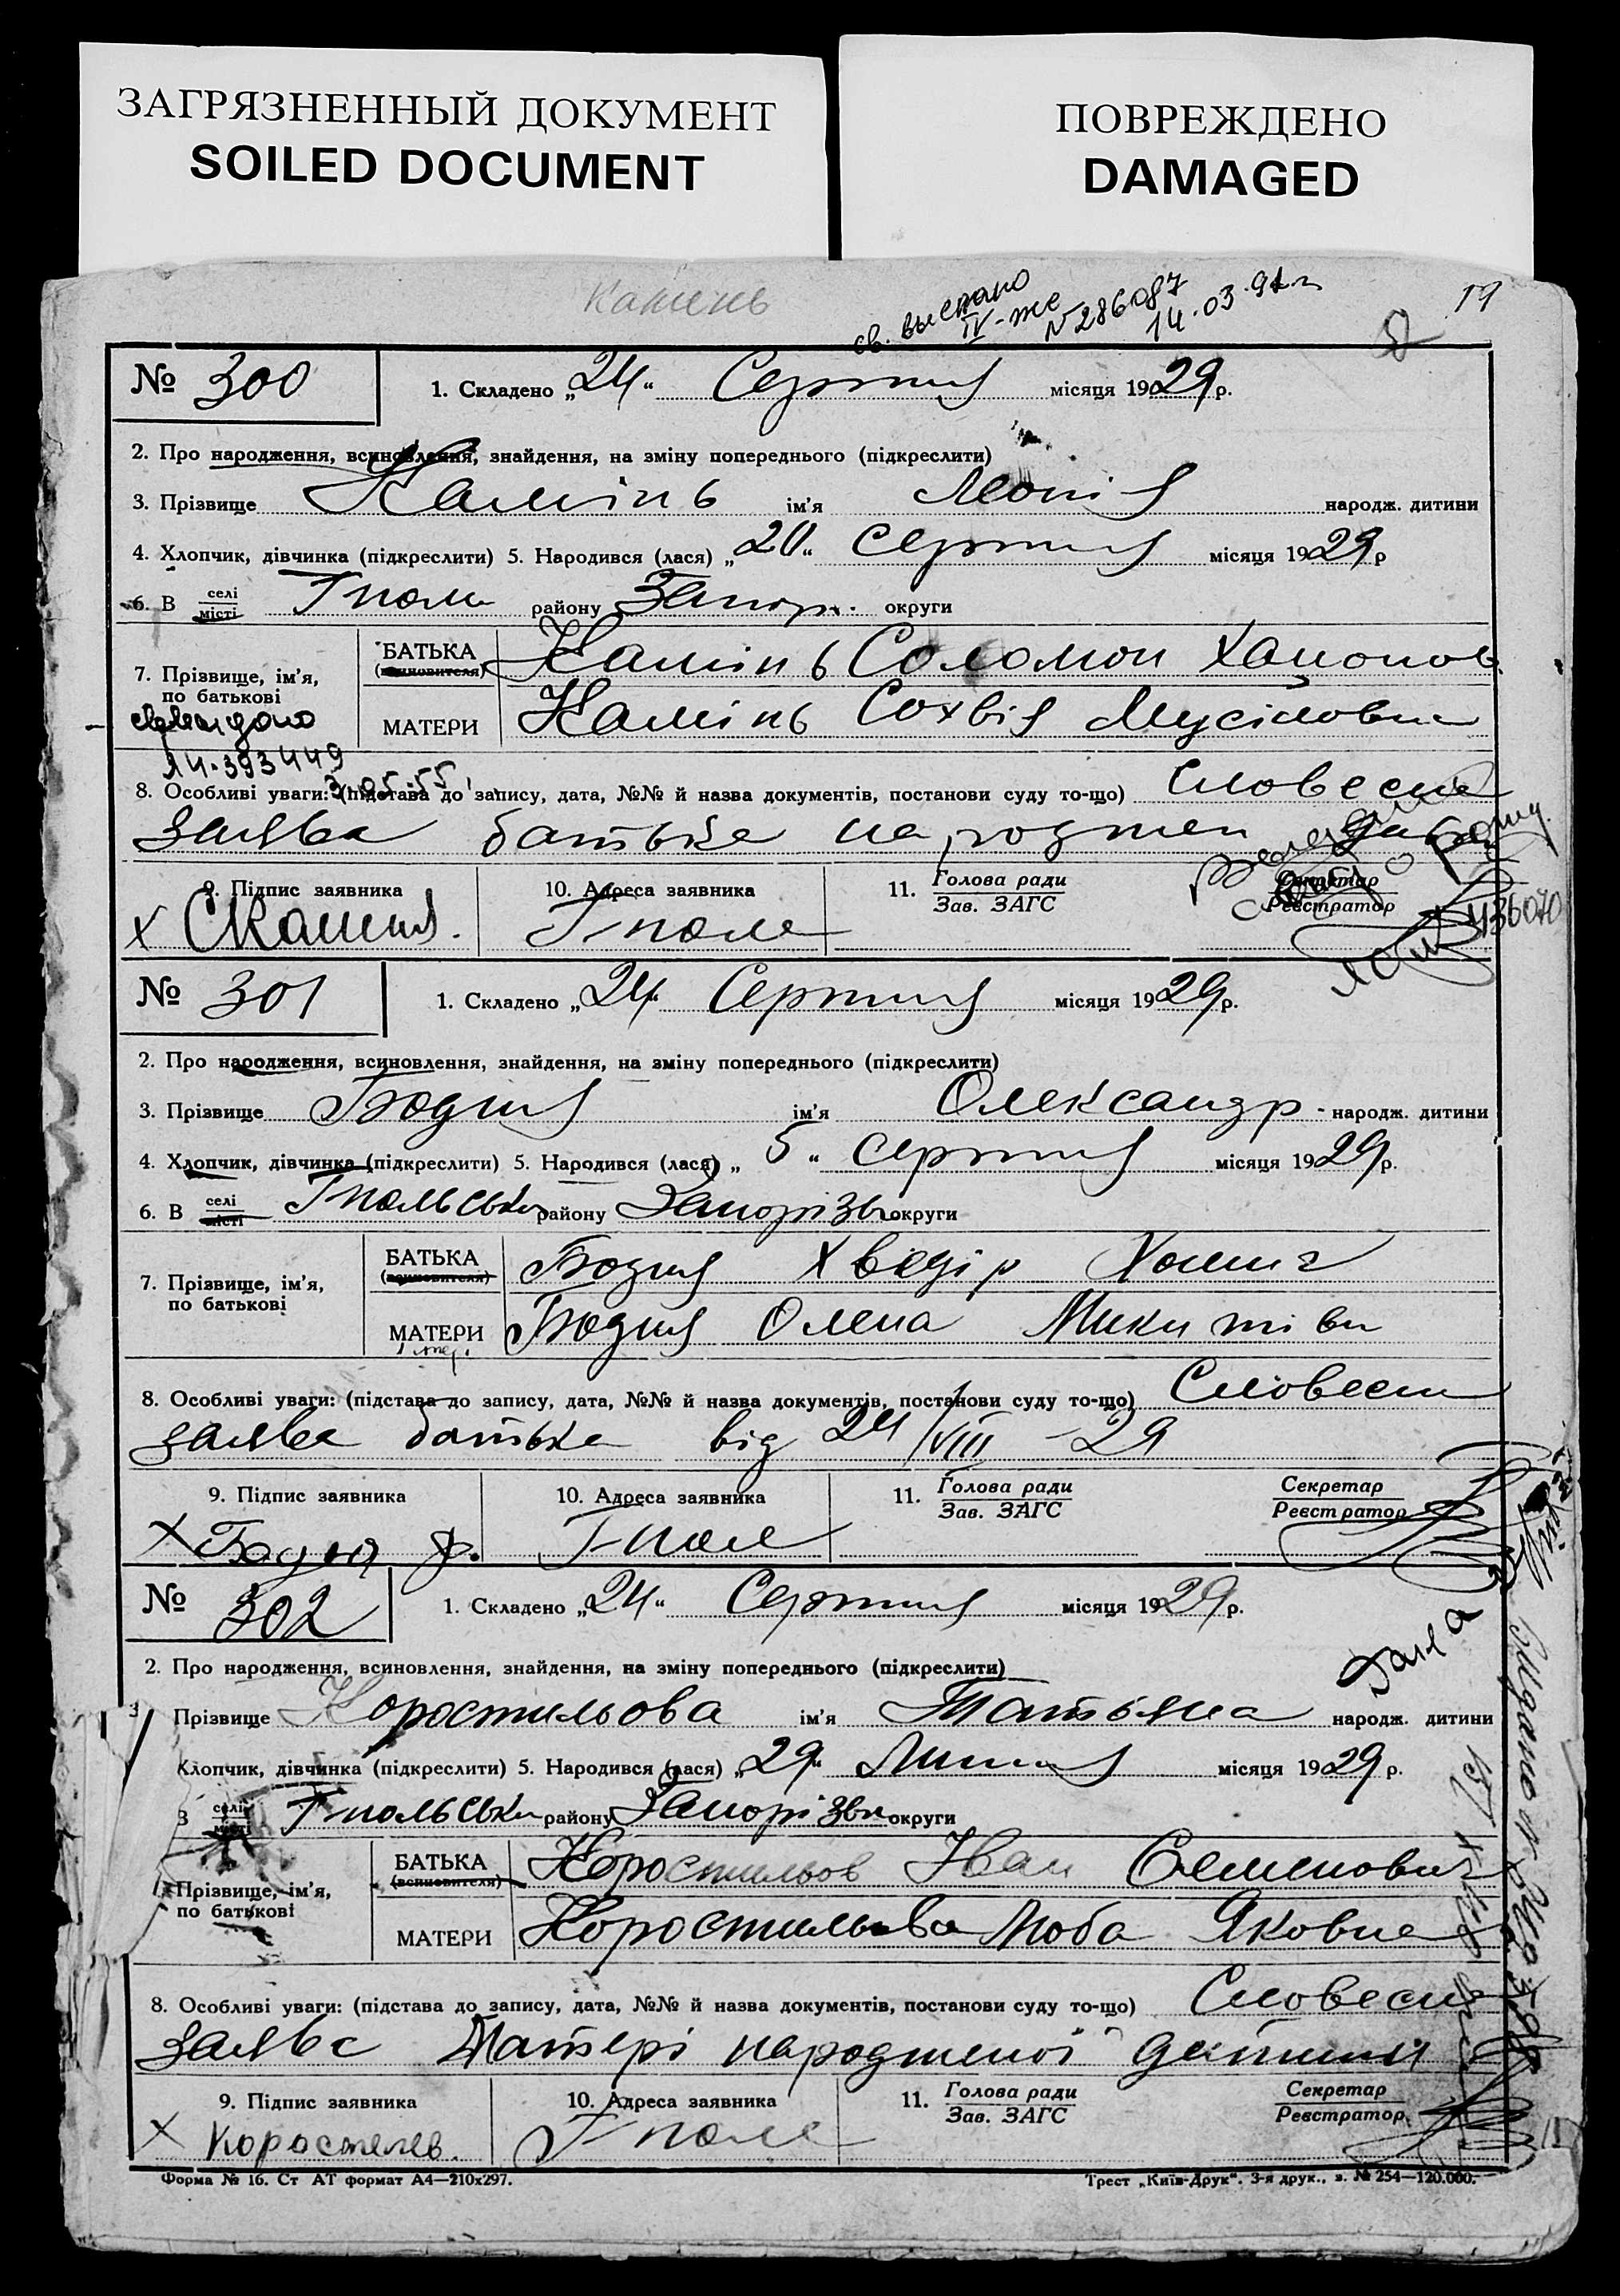 ЗАГРЯЗНЕННЫЙ ДОКУМЕНТ
SOILED DOCUMENT
ПОВРЕЖДЕНО
DAMAGED
Камень
св. выслано
IV-же
№ 286087
14.03.91 г
19
№ 300
1. Складено „24“ Серпня місяця 1929 р.
2. Про народження, всиновлення, знайдення, на зміну попереднього (підкреслити)
3. Прізвище Камінь ім'я народж. дитини
4. Хлопчик, дівчинка (підкреслити) 5. Народився (лася) „20“ серпня місяця 1929 р
6. В селі місті Гполе району Запор. округи
7. Прізвище, ім'я, по батькові
БАТЬКА (всиновителя) Камінь Соломон
МАТЕРИ Камінь Сохвія Мусіювна
393449
3.05.55
8. Особливі уваги: (підстава до запису, дата, №№ й назва документів, постанови суду то-що) Словесна
заява батька народжен
9. Підпис заявника
10. Адреса заявника
11. Голова ради
Зав. ЗАГС
Секретар
Реєстратор
х СКамінь.
Гполе
№ 301
1. Складено „24“ Серпня місяця 1929 р.
2. Про народження, всиновлення, знайдення, на зміну попереднього (підкреслити)
3. Прізвище Бодня ім'я Олександр народж. дитини
4. Хлопчик, дівчинка (підкреслити) 5. Народився (лася) „5“ серпня місяця 1929 р.
6. В селі місті Гпольськ району Запорізьк округи
7. Прізвище, ім'я, по батькові
БАТЬКА (всиновителя) Бодня Хведір Хомич
МАТЕРИ Бодня Олена Микитівн
8. Особливі уваги: (підстава до запису, дата, №№ й назва документів, постанови суду то-що) Словесн
заява батька від 24/VIII 29
9. Підпис заявника
10. Адреса заявника
11. Голова ради
Зав. ЗАГС
Секретар
Реєстратор
х Бодня Ф.
Гполе
№ 302
1. Складено „24“ Серпня місяця 1929 р.
2. Про народження, всиновлення, знайдення, на зміну попереднього (підкреслити)
3 Прізвище Коростильова ім'я Татьяна народж. дитини
Хлопчик, дівчинка (підкреслити) 5. Народився (лася) „29“ Липня місяця 1929 р.
В селі місті Гпольськ району Запорізьк округи
Прізвище, ім'я, по батькові
БАТЬКА (всиновителя) Коростильов Іван Семенович
МАТЕРИ Коростильова Люба Яковна
8. Особливі уваги: (підстава до запису, дата, №№ й назва документів, постанови суду то-що) Словесна
заява Матері народженої дитини
9. Підпис заявника
10. Адреса заявника
11. Голова ради
Зав. ЗАГС
Секретар
Реєстратор
х Коростелев.
Гполе
Форма № 16. Ст АТ формат А4—210x297.
Трест „Київ-Друк“. 3-я друк., з. № 254—120.000.